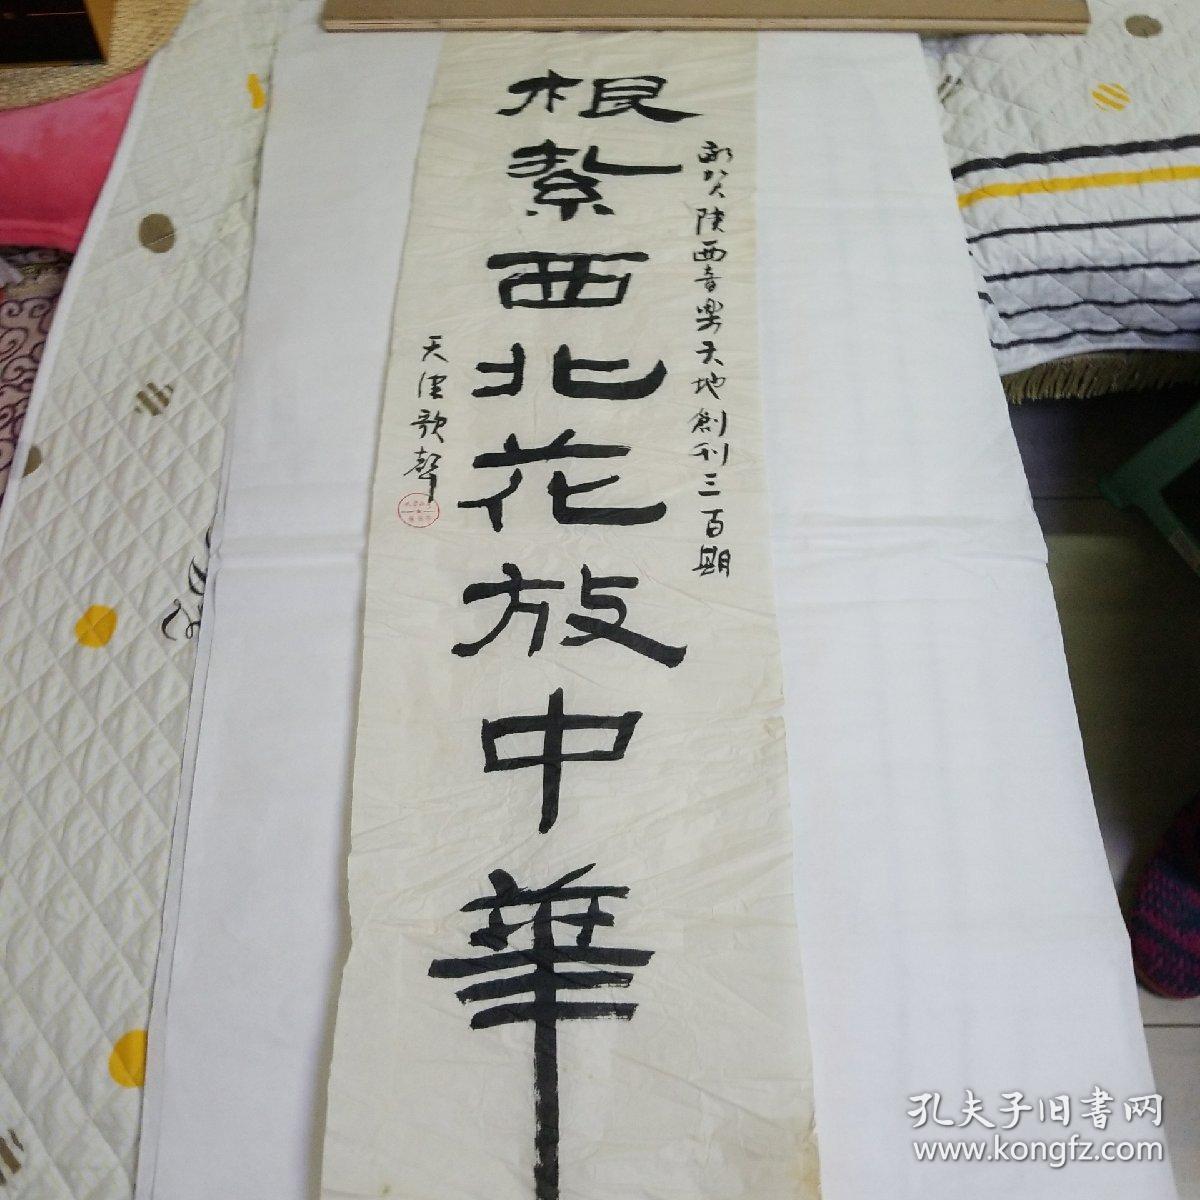 敬贺陕西音樂天地創刊三百期
根紮西北花放中華
天津歌聲
孔夫子旧書网
www.kongfz.com